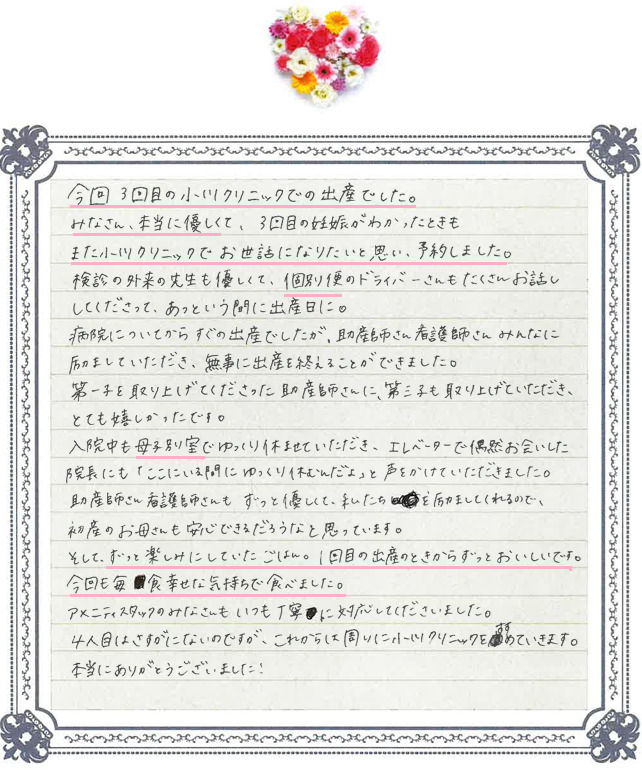 今回 3回目の小川クリニックでの出産でした。
みなさん、本当に優しくて、3回目の妊娠がわかったときも
また小川クリニックでお世話になりたいと思い、予約しました。
検診の外来の先生も優しくて、個別便のドライバーさんもたくさんお話し
してくださって、あっという間に出産日に。
病院についてからすぐの出産でしたが、助産師さん看護師さんみんなに
励ましていただき、無事に出産を終えることができました。
第一子を取り上げてくださった助産師さんに、第三子も取り上げていただき、
とても嬉しかったです。
入院中も母子別室でゆっくり休ませていただき、エレベーターで偶然お会いした
院長にも「ここにいる間にゆっくり休むんだよ」と声をかけていただきました。
助産師さん看護師さんもずっと優しくて、私たちを励ましてくれるので、
初産のお母さんも安心できるだろうなと思っています。
そして、ずっと楽しみにしていたごはん。1回目の出産のときからずっとおいしいです。
今回も毎食幸せな気持ちで食べました。
アメニティスタッフのみなさんもいつも丁寧に対応してくださいました。
4人目はさすがにないのですが、これからは周りに小川クリニックを薦めていきます。
本当にありがとうございました!